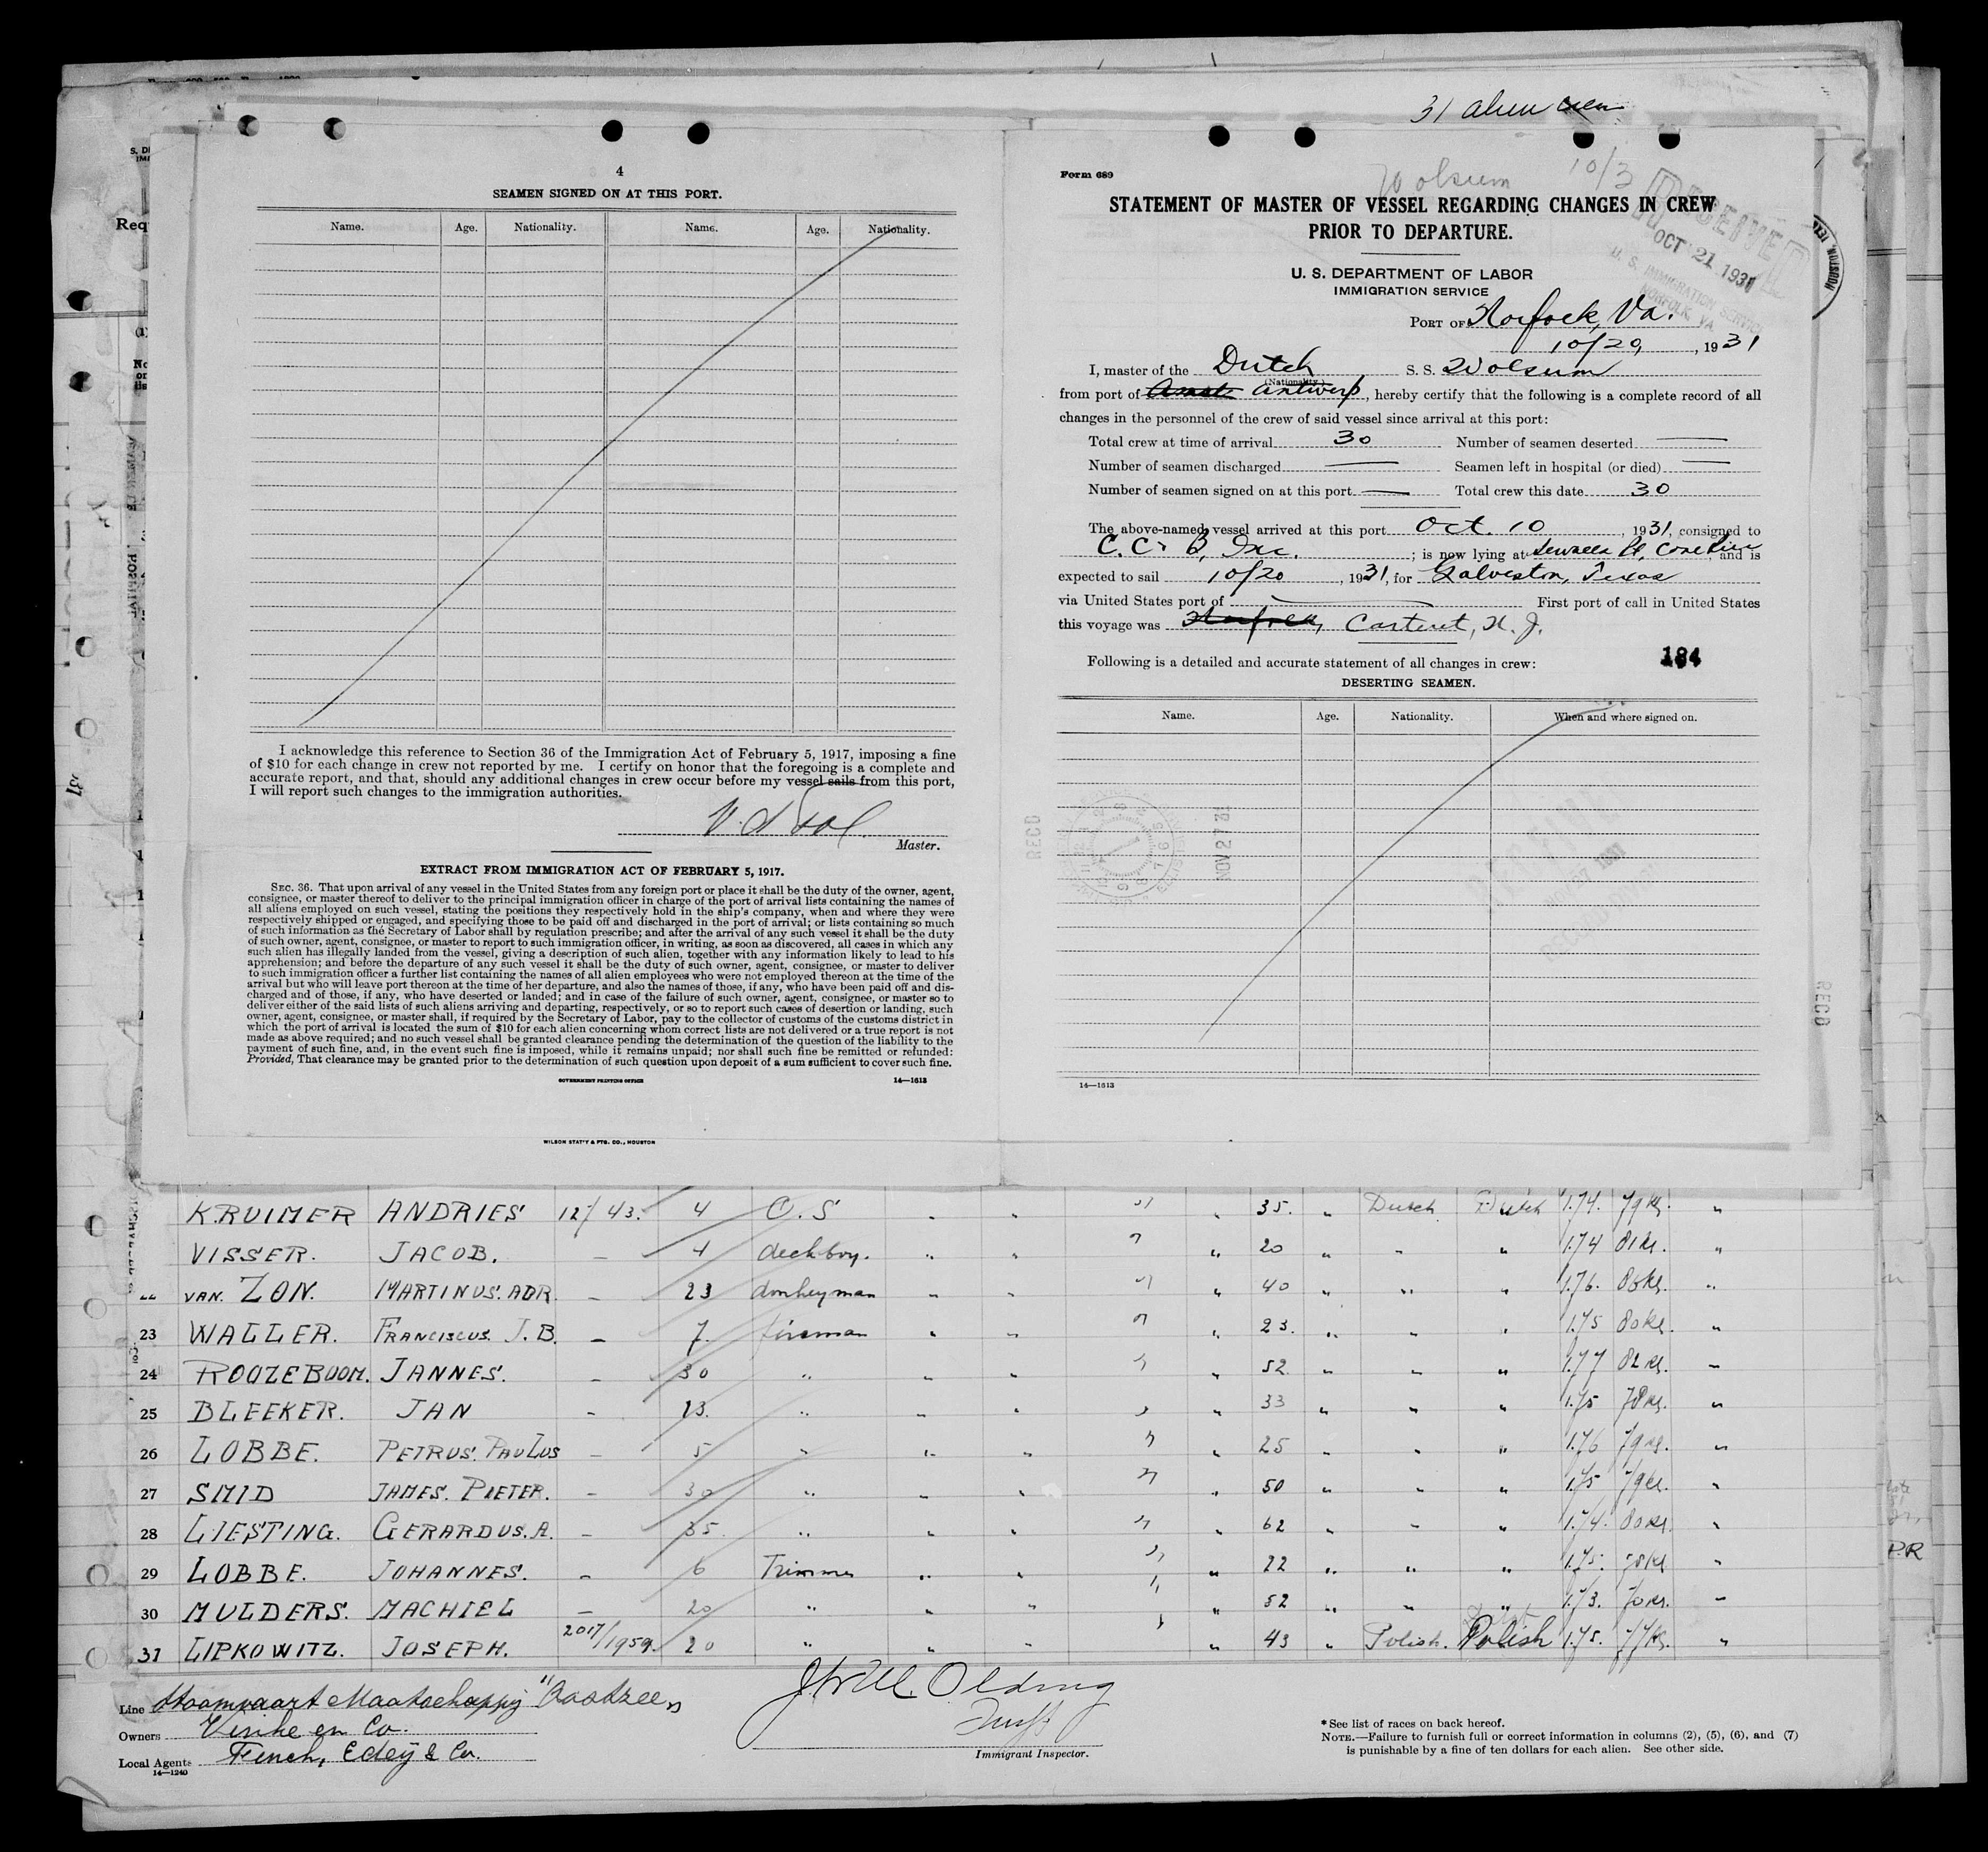 31 alien crew
4
SEAMEN SIGNED ON AT THIS PORT.
Name. Age. Nationality. Name. Age. Nationality.
I acknowledge this reference to Section 36 of the Immigration Act of February 5, 1917, imposing a fine
of $10 for each change in crew not reported by me. I certify on honor that the foregoing is a complete and
accurate report, and that, should any additional changes in crew occur before my vessel sails from this port,
I will report such changes to the immigration authorities.
Master.
EXTRACT FROM IMMIGRATION ACT OF FEBRUARY 5, 1917.
SEC. 36. That upon arrival of any vessel in the United States from any foreign port or place it shall be the duty of the owner, agent,
consignee, or master thereof to deliver to the principal immigration officer in charge of the port of arrival lists containing the names of
all aliens employed on such vessel, stating the positions they respectively hold in the ship's company, when and where they were
respectively shipped or engaged, and specifying those to be paid off and discharged in the port of arrival; or lists containing so much
of such information as the Secretary of Labor shall by regulation prescribe; and after the arrival of any such vessel it shall be the duty
of such owner, agent, consignee, or master to report to such immigration officer, in writing, as soon as discovered, all cases in which any
such alien has illegally landed from the vessel, giving a description of such alien, together with any information likely to lead to his
apprehension; and before the departure of any such vessel it shall be the duty of such owner, agent, consignee, or master to deliver
to such immigration officer a further list containing the names of all alien employees who were not employed thereon at the time of the
arrival but who will leave port thereon at the time of her departure, and also the names of those, if any, who have been paid off and dis-
charged and of those, if any, who have deserted or landed; and in case of the failure of such owner, agent, consignee, or master so to
deliver either of the said lists of such aliens arriving and departing, respectively, or so to report such cases of desertion or landing, such
owner, agent, consignee, or master shall, if required by the Secretary of Labor, pay to the collector of customs of the customs district in
which the port of arrival is located the sum of $10 for each alien concerning whom correct lists are not delivered or a true report is not
made as above required; and no such vessel shall be granted clearance pending the determination of the question of the liability to the
payment of such fine, and, in the event such fine is imposed, while it remains unpaid; nor shall such fine be remitted or refunded:
Provided, That clearance may be granted prior to the determination of such question upon deposit of a sum sufficient to cover such fine.
GOVERNMENT PRINTING OFFICE 14—1613
WILSON STAT'Y & PTG. CO., HOUSTON
Form 689
Wolsum 10/3
STATEMENT OF MASTER OF VESSEL REGARDING CHANGES IN CREW
PRIOR TO DEPARTURE.
RECEIVED
OCT 21 1931
U. S. IMMIGRATION SERVICE
NORFOLK, VA.
U. S. DEPARTMENT OF LABOR
IMMIGRATION SERVICE
PORT OF Norfolk, Va.
10/20, 1931
I, master of the Dutch S. S. Wolsum
(Nationality)
from port of Amst Antwerp, hereby certify that the following is a complete record of all
changes in the personnel of the crew of said vessel since arrival at this port:
Total crew at time of arrival 30 Number of seamen deserted —
Number of seamen discharged — Seamen left in hospital (or died) —
Number of seamen signed on at this port — Total crew this date 30
The above-named vessel arrived at this port Oct. 10, 1931, consigned to
C. C. & B, Inc.; is now lying at Sewalls Pt, and is
expected to sail 10/20, 1931, for Galveston, Texas
via United States port of — First port of call in United States
this voyage was Norfolk, Carteret, N. J.
Following is a detailed and accurate statement of all changes in crew: 194
DESERTING SEAMEN.
Name. Age. Nationality. When and where signed on.
RECD
NOV 27
RECD
14—1613
KRUIMER ANDRIES 12/43. 4 O.S " " " " 35. " Dutch Dutch 1.74. 79 Kg. "
VISSER. JACOB. — 4 deckboy. " " " " 20 " " " 1.74 81 Kg. "
VAN. ZON. MARTINUS. ADR. — 23 donkeyman " " " " 40 " " " 1.76. 85 Kg. "
23 WALLER. FRANCISCUS. J.B. — 7. fireman " " " " 23. " " " 1.75 80 Kg. "
24 ROOZEBOOM. JANNES. — 30 " " " " " 52. " " " 1.77 82 Kg. "
25 BLEEKER. JAN — 13. " " " " " 33 " " " 1.75 78 Kg. "
26 LOBBE. PETRUS. PAULUS — 5 " " " " " 25 " " " 1.76 79 Kg. "
27 SMID JAMES. PIETER. — 30 " " " " " 50 " " " 1.75 79 Kg. "
28 LIESTING. GERARDUS. A. — 35. " " " " " 62 " " " 1.74. 80 Kg. "
29 LOBBE. JOHANNES. — 6 Trimmer " " " " 22 " " " 1.75. 78 Kg "
30 MULDERS. MACHIEL — 20 " " " " " 52 " " " 1.73. 70 Kg. "
31 LIPKOWITZ. JOSEPH. 2017/1959. 20 " " " " " 43 " Polish. Polish 1.75. 77 Kg. "
P.R
Line Stoomvaart Maatschappij "Oostzee"
Owners Vinke en Co.
Local Agents Fench, Edeÿ & Co.
14—1240
Immigrant Inspector.
*See list of races on back hereof.
NOTE.—Failure to furnish full or correct information in columns (2), (5), (6), and (7)
is punishable by a fine of ten dollars for each alien. See other side.